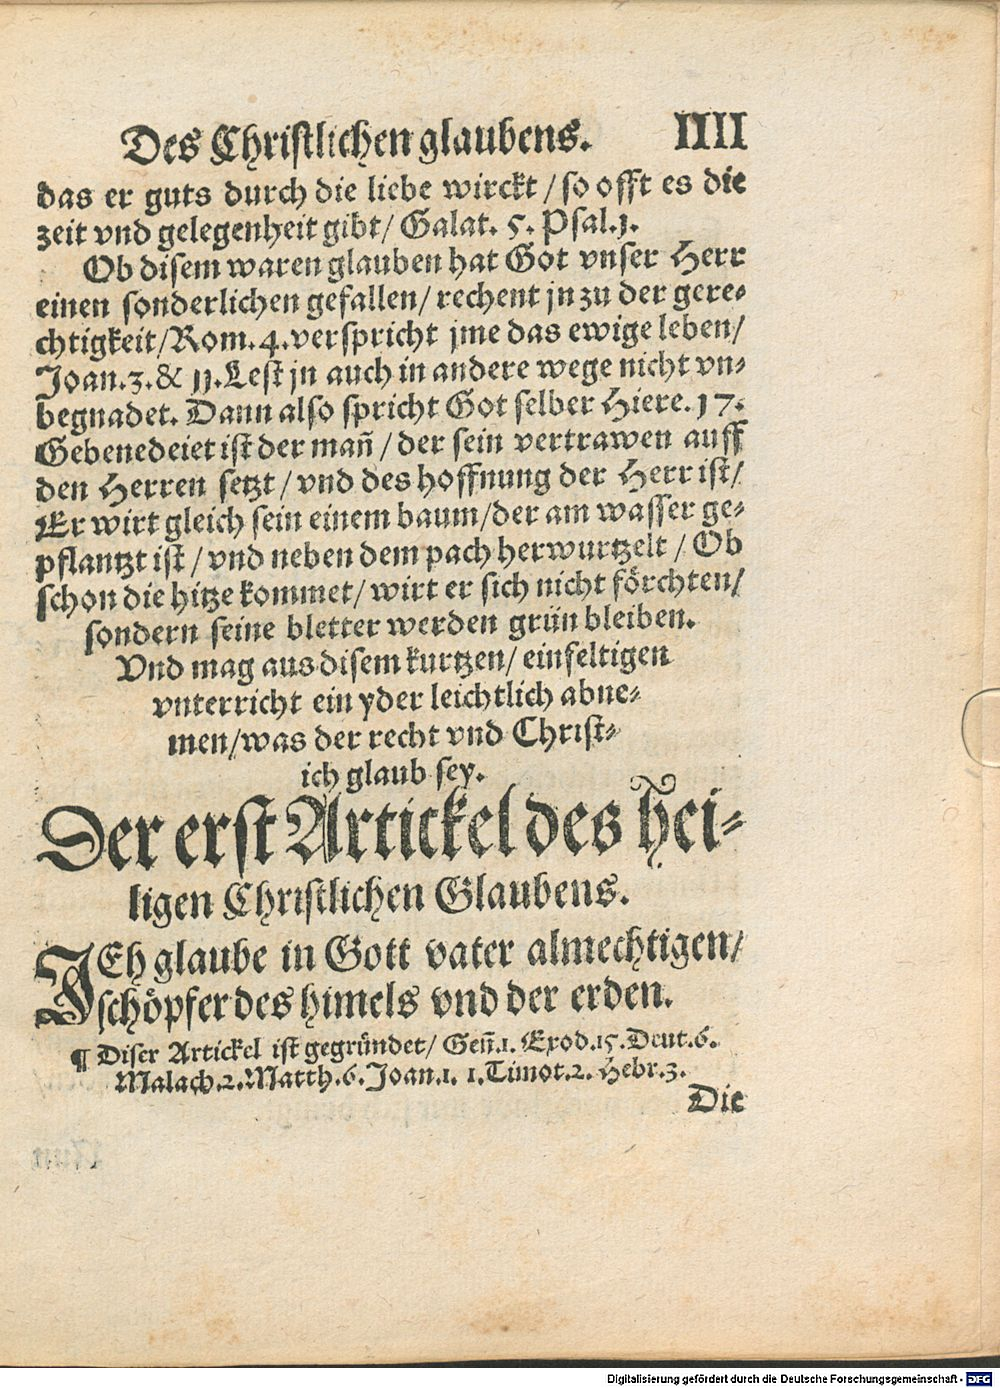 Des Christlichen glaubens. IIII
das er guts durch die liebe wirckt / so offt es die
zeit vnd gelegenheit gibt / Galat. 5. Psal.j.
Ob disem waren glauben hat Got vnser Herr
einen sonderlichen gefallen / rechent jn zu der gere⸗
chtigkeit / Rom. 4. verspricht jme das ewige leben /
Joan. 3. & 11. Lest jn auch in andere wege nicht vn⸗
begnadet. Dann also spricht Got selber Hiere. 17.
Gebenedeiet ist der man̄ / der sein vertrawen auff
den Herren setzt / vnd des hoffnung der Herr ist /
Er wirt gleich sein einem baum / der am wasser ge⸗
pflantzt ist / vnd neben dem pach herwurtzelt / Ob
schon die hitze kommet / wirt er sich nicht förchten /
sondern seine bletter werden grün bleiben.
Vnd mag aus disem kurtzen / einfeltigen
vnterricht ein yder leichtlich abne⸗
men / was der recht vnd Christ⸗
ich glaub sey.
Der erst Artickel des hei⸗
ligen Christlichen Glaubens.
ICh glaube in Gott vater almechtigen /
schöpfer des himels vnd der erden.
¶ Diser Artickel ist gegründet / Gen̄.1. Exod.15. Deut.6.
Malach.2. Matth.6. Joan.1. 1.Timot.2. Hebr.3.
Die
Digitalisierung gefördert durch die Deutsche Forschungsgemeinschaft - DFG